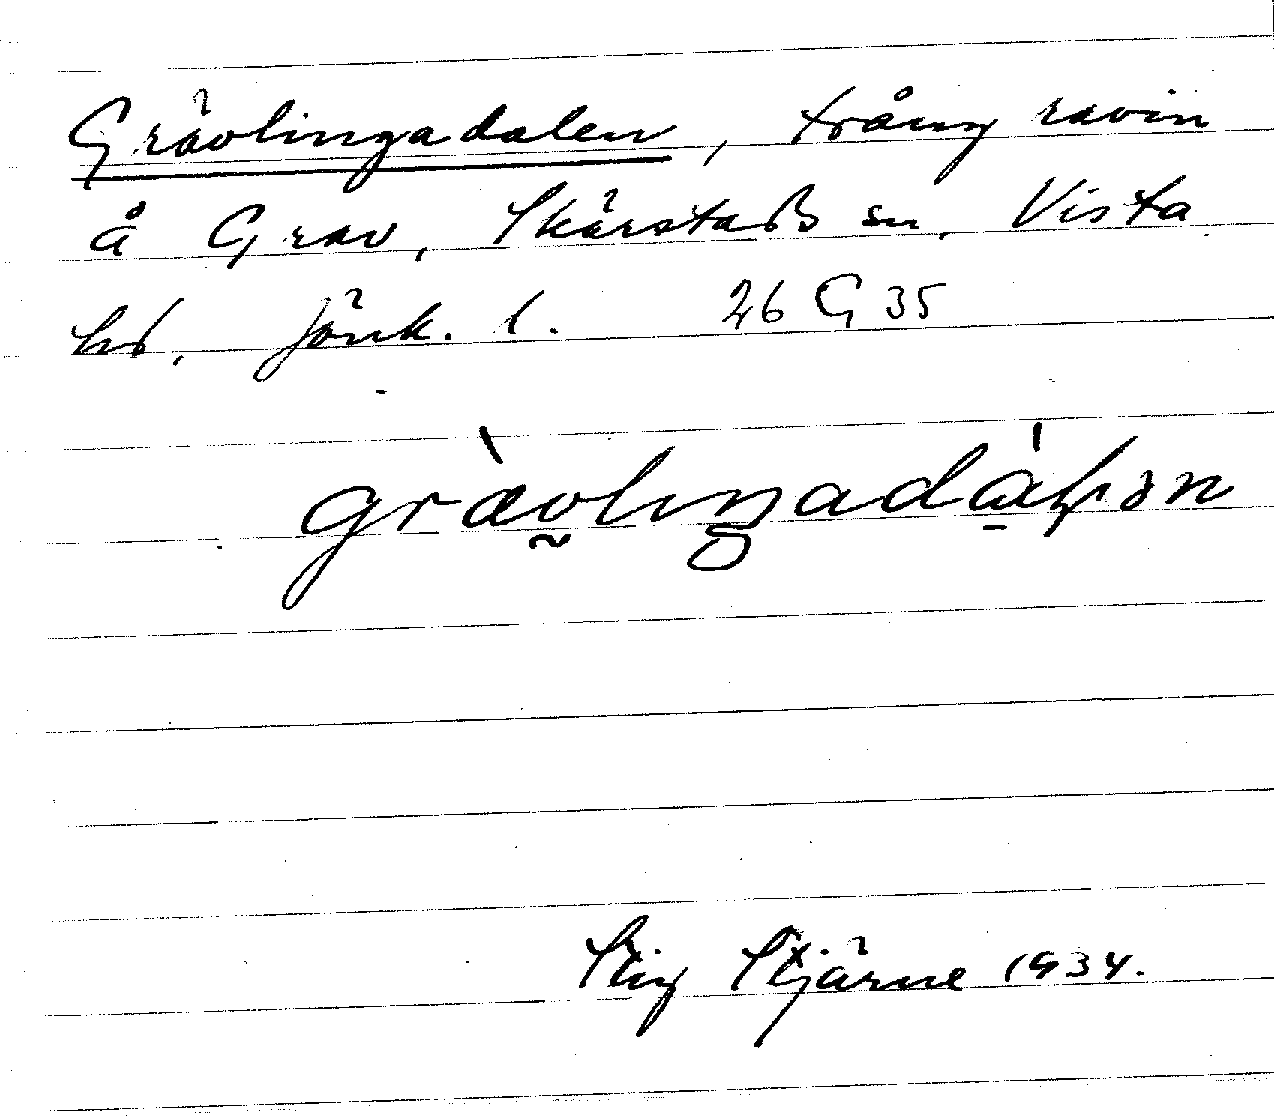 Grävlingadalen, trång ravin
å Grav, Skärstads sn, Vista
hd, Jönk. l. 26 G 35
grævlıŋadɑlən
Stig Stjärne 1934.